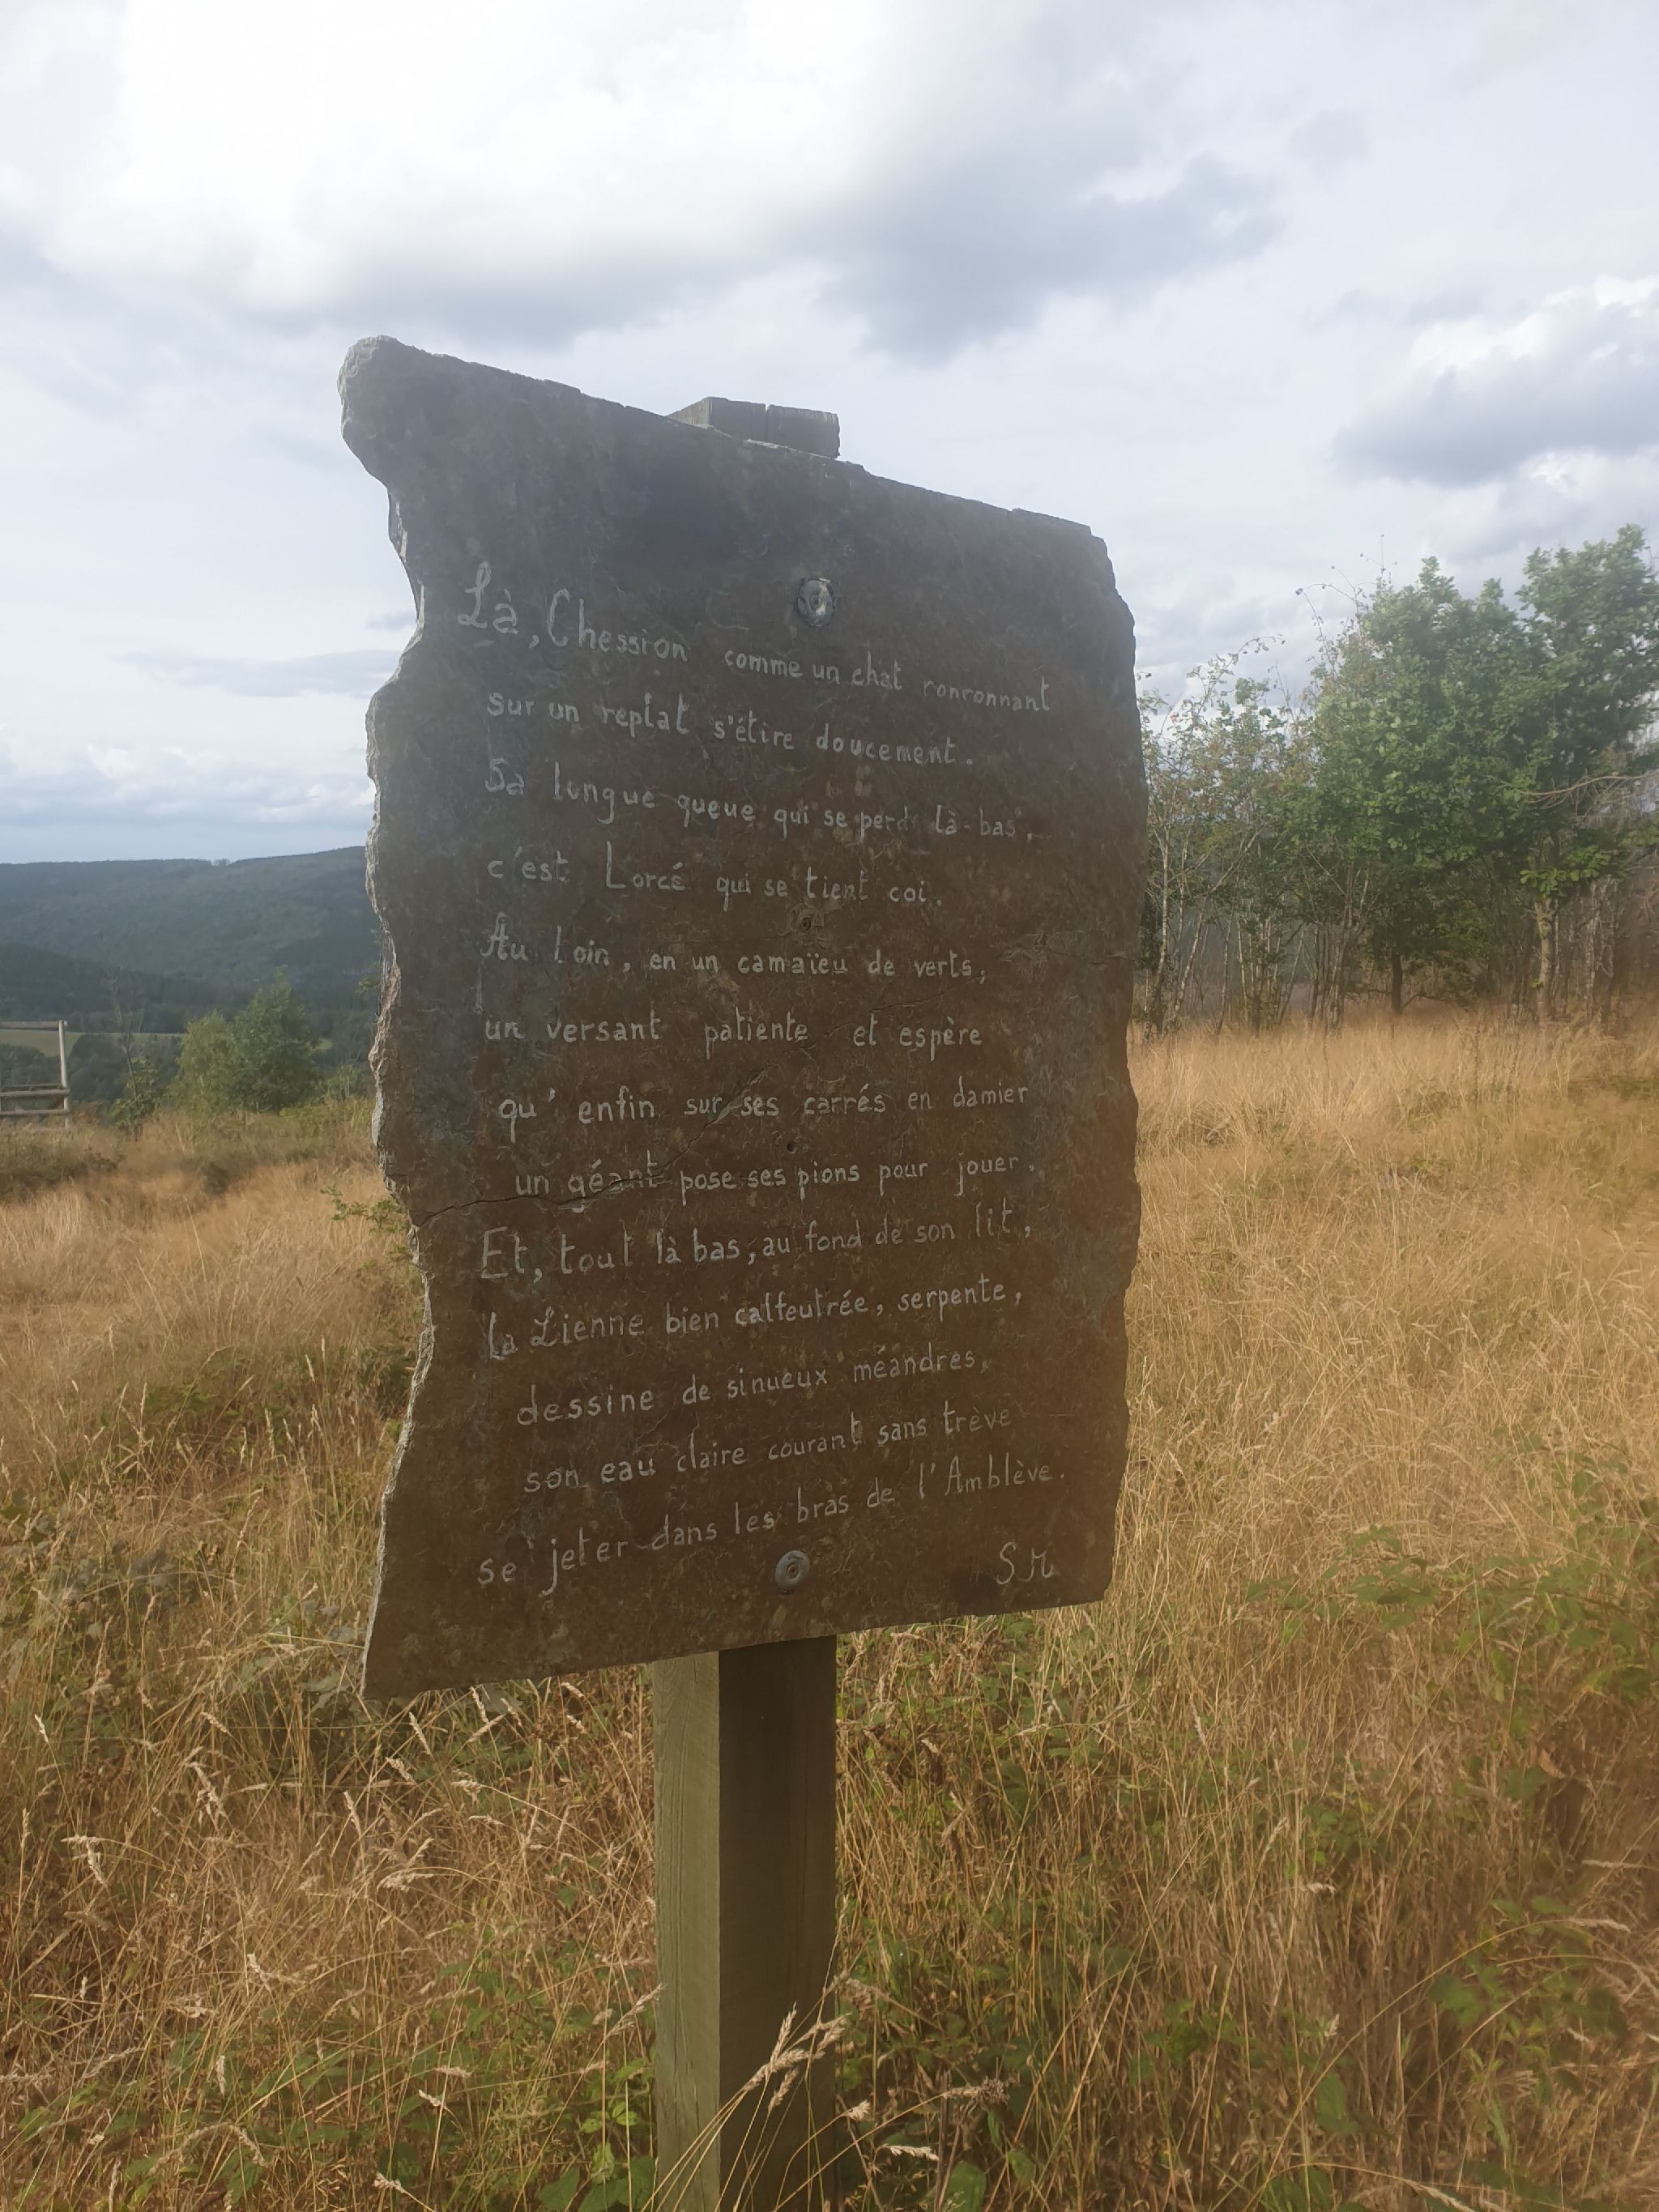 Là, Chession comme un chat ronronnant
sur un replat s'étire doucement.
Sa longue queue qui se perd là-bas,
c'est Lorcé qui se tient coi.
Au loin, en un camaïeu de verts,
un versant patiente et espère
qu'enfin sur ses carrés en damier
un géant pose ses pions pour jouer.
Et, tout là bas, au fond de son lit,
la Lienne bien calfeutrée, serpente,
dessine de sinueux méandres,
son eau claire courant sans trève
se jeter dans les bras de l'Amblève.
SM